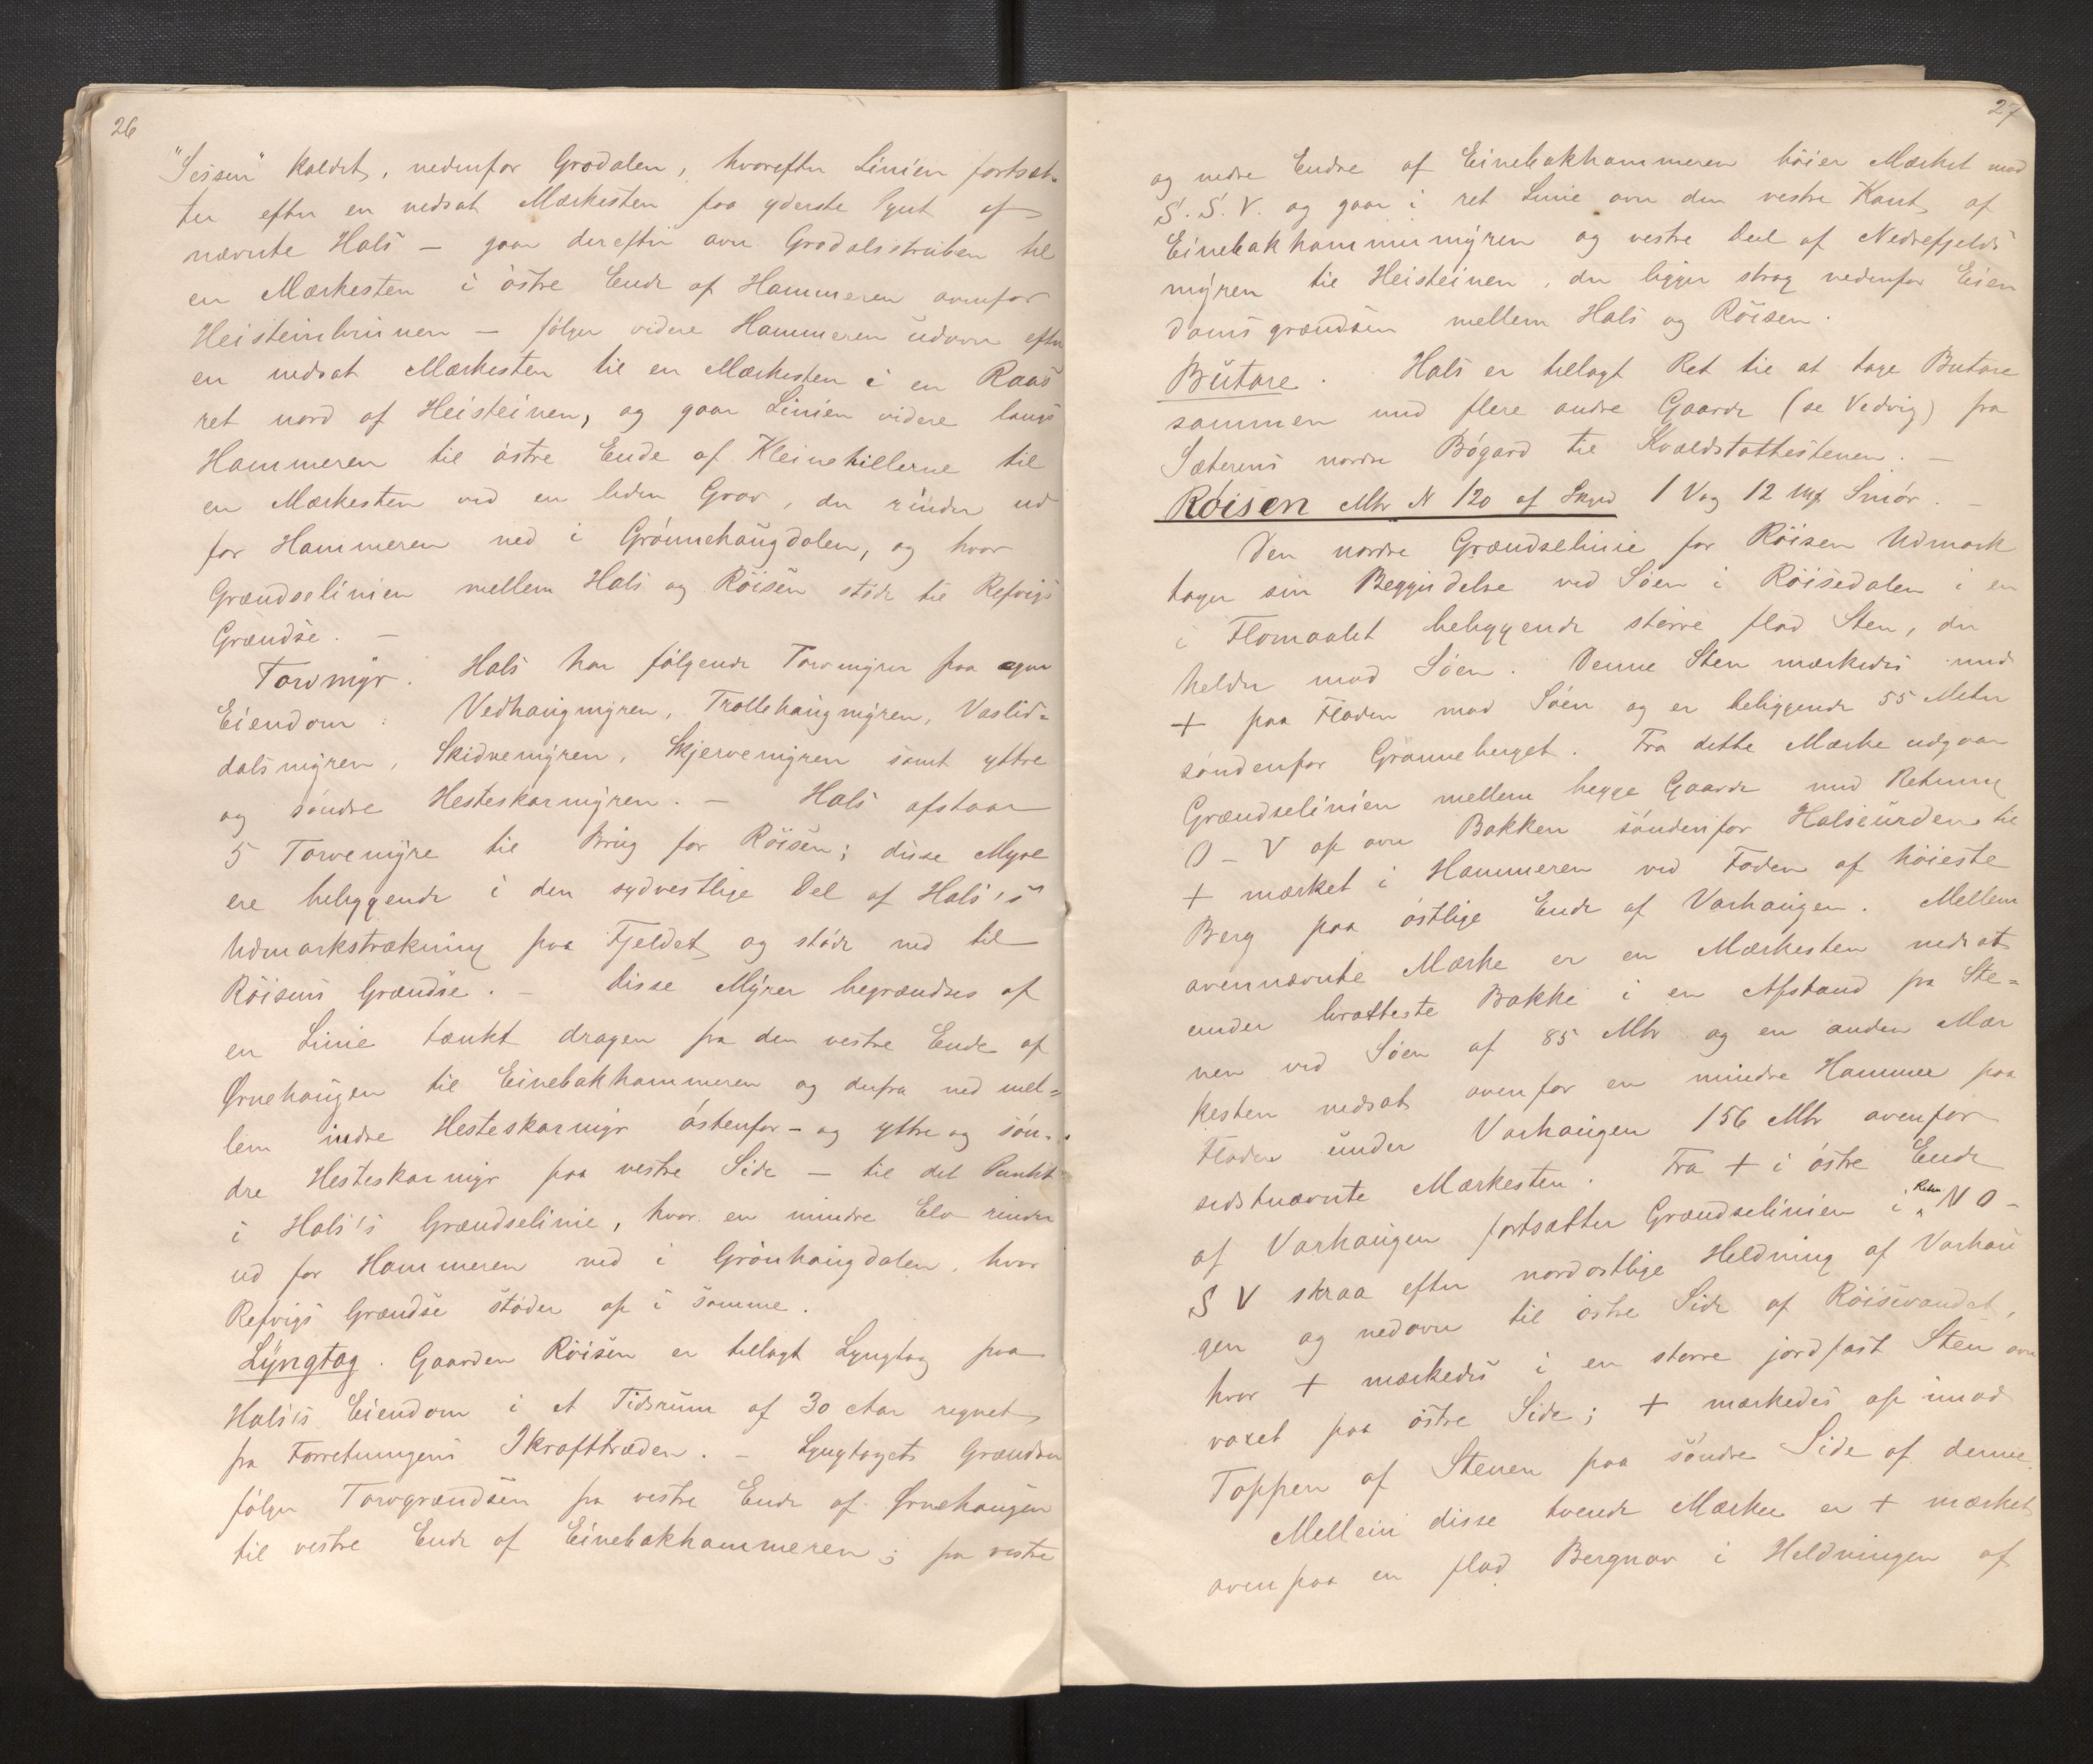 26
"Sessen" kaldet, nedenfor Grodalen, hvorefter Linien fortsæt-
ter efter en nedsat Mærkesten paa yderste Pynt af
nævnte Hals — gaar derefter over Grodalsstruben til
en Mærkesten i östre Ende af Hammeren ovenfor
Heisteinbrunen — fölger videre Hammeren udover efter
en nedsat Mærkesten til en Mærkesten i en Raas
ret nord af Heisteinen, og gaar Linien videre langs
Hammeren til östre Ende af Kleinehillerne til
en Mærkesten ved en liden Grov, der rinder ud
for Hammeren ned i Grönnehaugdalen, og hvor
Grændselinien mellem Hals og Röisen støde til Refvigs
Grændse. —
Torvmyr. Hals har fölgende Torvmyrer paa egen
Eiendom: Vedhaugmyren, Trollehaugmyren, Vaslid=
dalsmyren, Skidnemyren, Skjervemyren samt yttre
og söndre Hesteskarmyren. — Hals afstaar
5 Torvemyre til Brug for Röisen; disse Myre
ere beliggende i den sydvestlige Del af Hals's
Udmarkstrækning paa Fjeldet og støde ned til
Röisens Grændse. — Disse Myrer begrændses af
en Linie tænkt dragen fra den vestre Ende af
Ørnehaugen til Einebakhammeren og derfra ned mel=
lem indre Hesteskarmyr östenfor - og yttre og sön-
dre Hesteskarmyr paa vestre Side — til det Punkt
i Hals's Grændselinie, hvor en mindre Elv rinder
ud for Hammeren ned i Grönhaugdalen, hvor
Refvigs Grændse støder op i samme.
Lyngtag. Gaarden Röisen er tillagt Lyngtag paa
Hals's Eiendom i et Tidsrum af 30 Aar regnet
fra Forretningens Ikrafttræden. — Lyngtagets Grændser
fölger Torvgrændsen fra vestre Ende af Ørnehaugen
til vestre Ende af Einebakhammeren; fra vestre
27
og nedre Endre af Einebakhammeren böier Mærket mod
S.S.V. og gaar i ret Linie over den vestre Kant af
Einebakhammermyren og vestre Deel af Nedrefjelds
myren til Heisteinen, der ligger strax nedenfor Eien
domsgrændsen mellem Hals og Röisen.
Butare. Hals er tillagt Ret til at tage Butare
sammen med flere andre Gaarde (se Vedvig) fra
Sæterens nordre Bögard til Kvaldstøttestenen. —
Röisen Mtr N 120 af Skyld 1 Vog 12 Mk Smör. —
Den nordre Grændselinie for Röisen Udmark
tager sin Begyndelse ved Söen i Röisedalen i en
i Flomaalet beliggende större flad Sten, der
helder mod Söen. Denne Sten mærkedes med
+ paa Fladen mod Söen og er beliggende 55 Meter
söndenfor Grönneberget. Fra dette Mærke udgaar
Grændselinien mellem begge Gaarde med Retning
O - V op over Bakken söndenfor Halseurden til
+ mærket i Hammeren ved Foden af höieste
Berg paa östlige Ende af Varhaugen. Mellem
ovennævnte Mærke er en Mærkesten nedsat
under bratteste Bakke i en Afstand fra Ste=
nen ved Söen af 85 Mtr og en anden Mær
kesten nedsat ovenfor en mindre Hammer paa
Fladen under Varhaugen 156 Mtr ovenfor
sidstnævnte Mærkesten. Fra + i östre Ende
af Varhaugen fortsætter Grændselinien i Retn NO -
S V skraa efter nordostlige Heldning af Varhau
gen og nedover til östre Side af Röisevandet,
hvor + mærkedes i en større jordfast Sten over
voxet paa östre Side; + mærkedes op imod
Toppen af Stenen paa söndre Side af denne.
Mellem disse tvende Mærker er + mærket
ovenpaa en flad Bergnov i Heldningen af